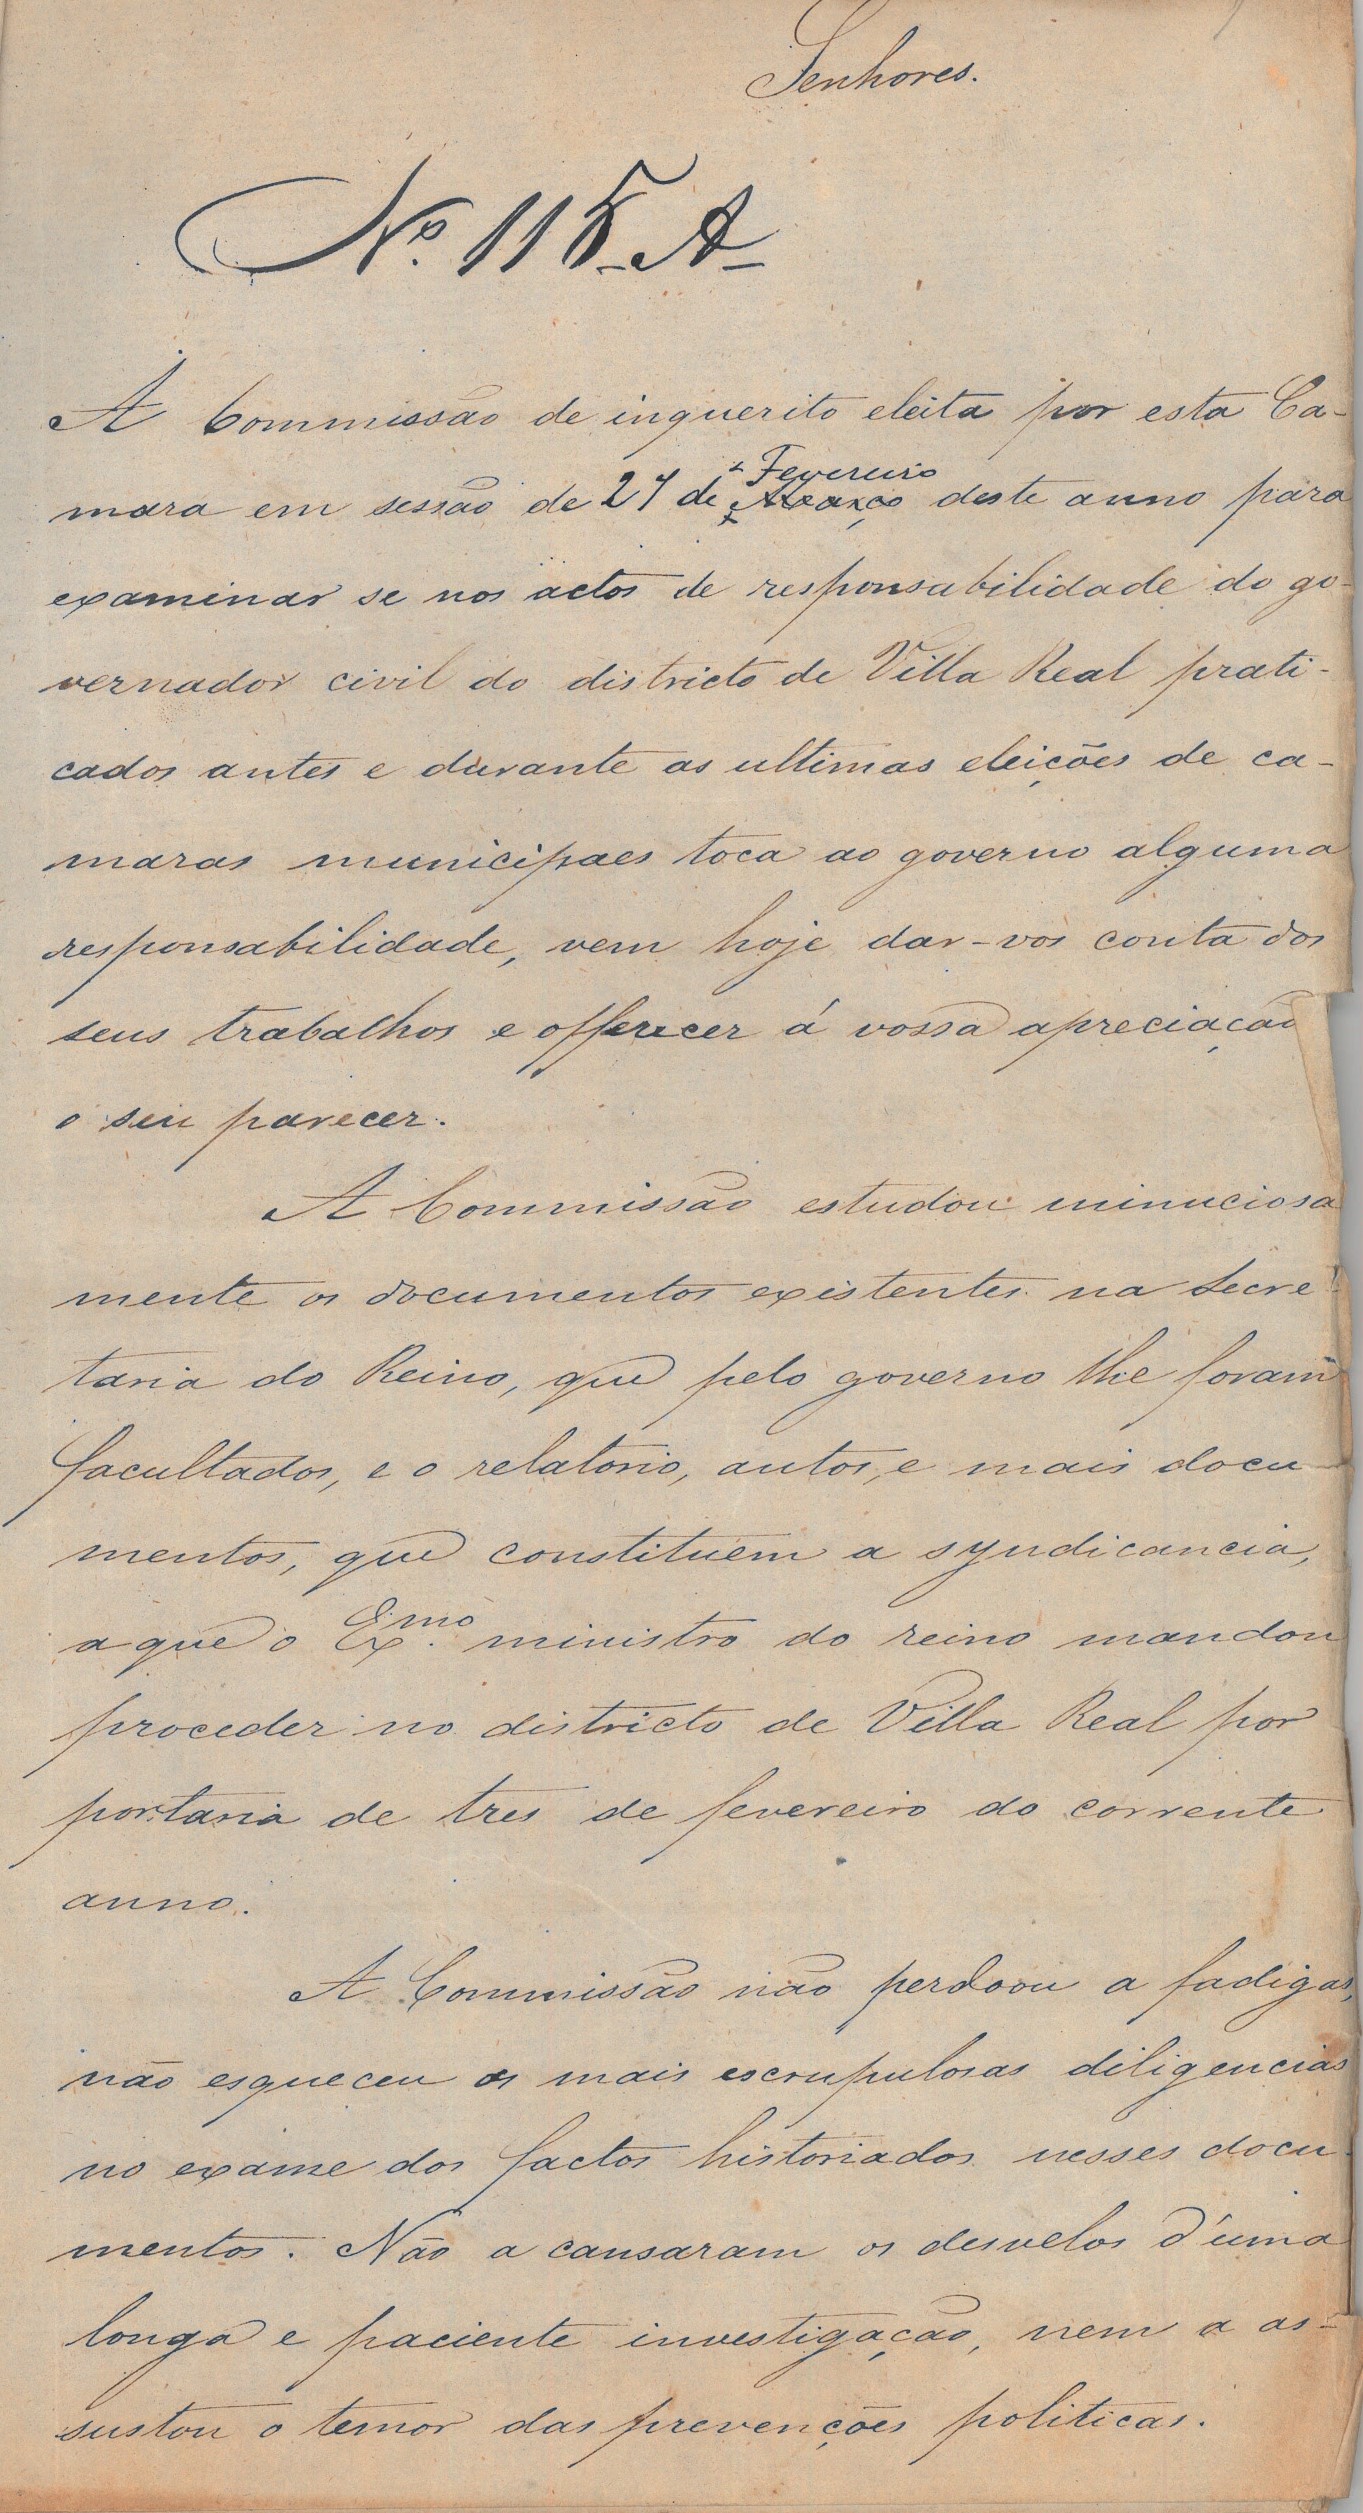 Senhores.
Nº. 115-A-
A Commissão de inquerito eleita por esta Ca-
mara em sessão de 27 de Fevereiro deste anno para
examinar se nos actos de responsabilidade do go-
vernador civil do districto de Villa Real prati-
cados antes e durante as ultimas eleições de ca-
maras municipaes toca ao governo alguma
responsabilidade, vem hoje dar-vos conta dos
seus trabalhos e offerecer á vossa apreciação
o seu parecer.
A Commissão estudou minuciosa
mente os documentos existentes na Secre
taria do Reino, que pelo governo lhe foram
facultados, e o relatorio, autos, e mais docu
mentos, que constituem a syndicancia,
a que o Ex.mo ministro do reino mandou
proceder no districto de Villa Real por
portaria de tres de fevereiro do corrente
anno.
A Commissão não perdoou a fadigas,
não esqueceu as mais escrupulosas diligencias
no exame dos factos historiados nesses docu
mentos. Não a cansaram os desvelos d'uma
longa e paciente investigação, nem a as-
sustou o temor das prevenções politicas.